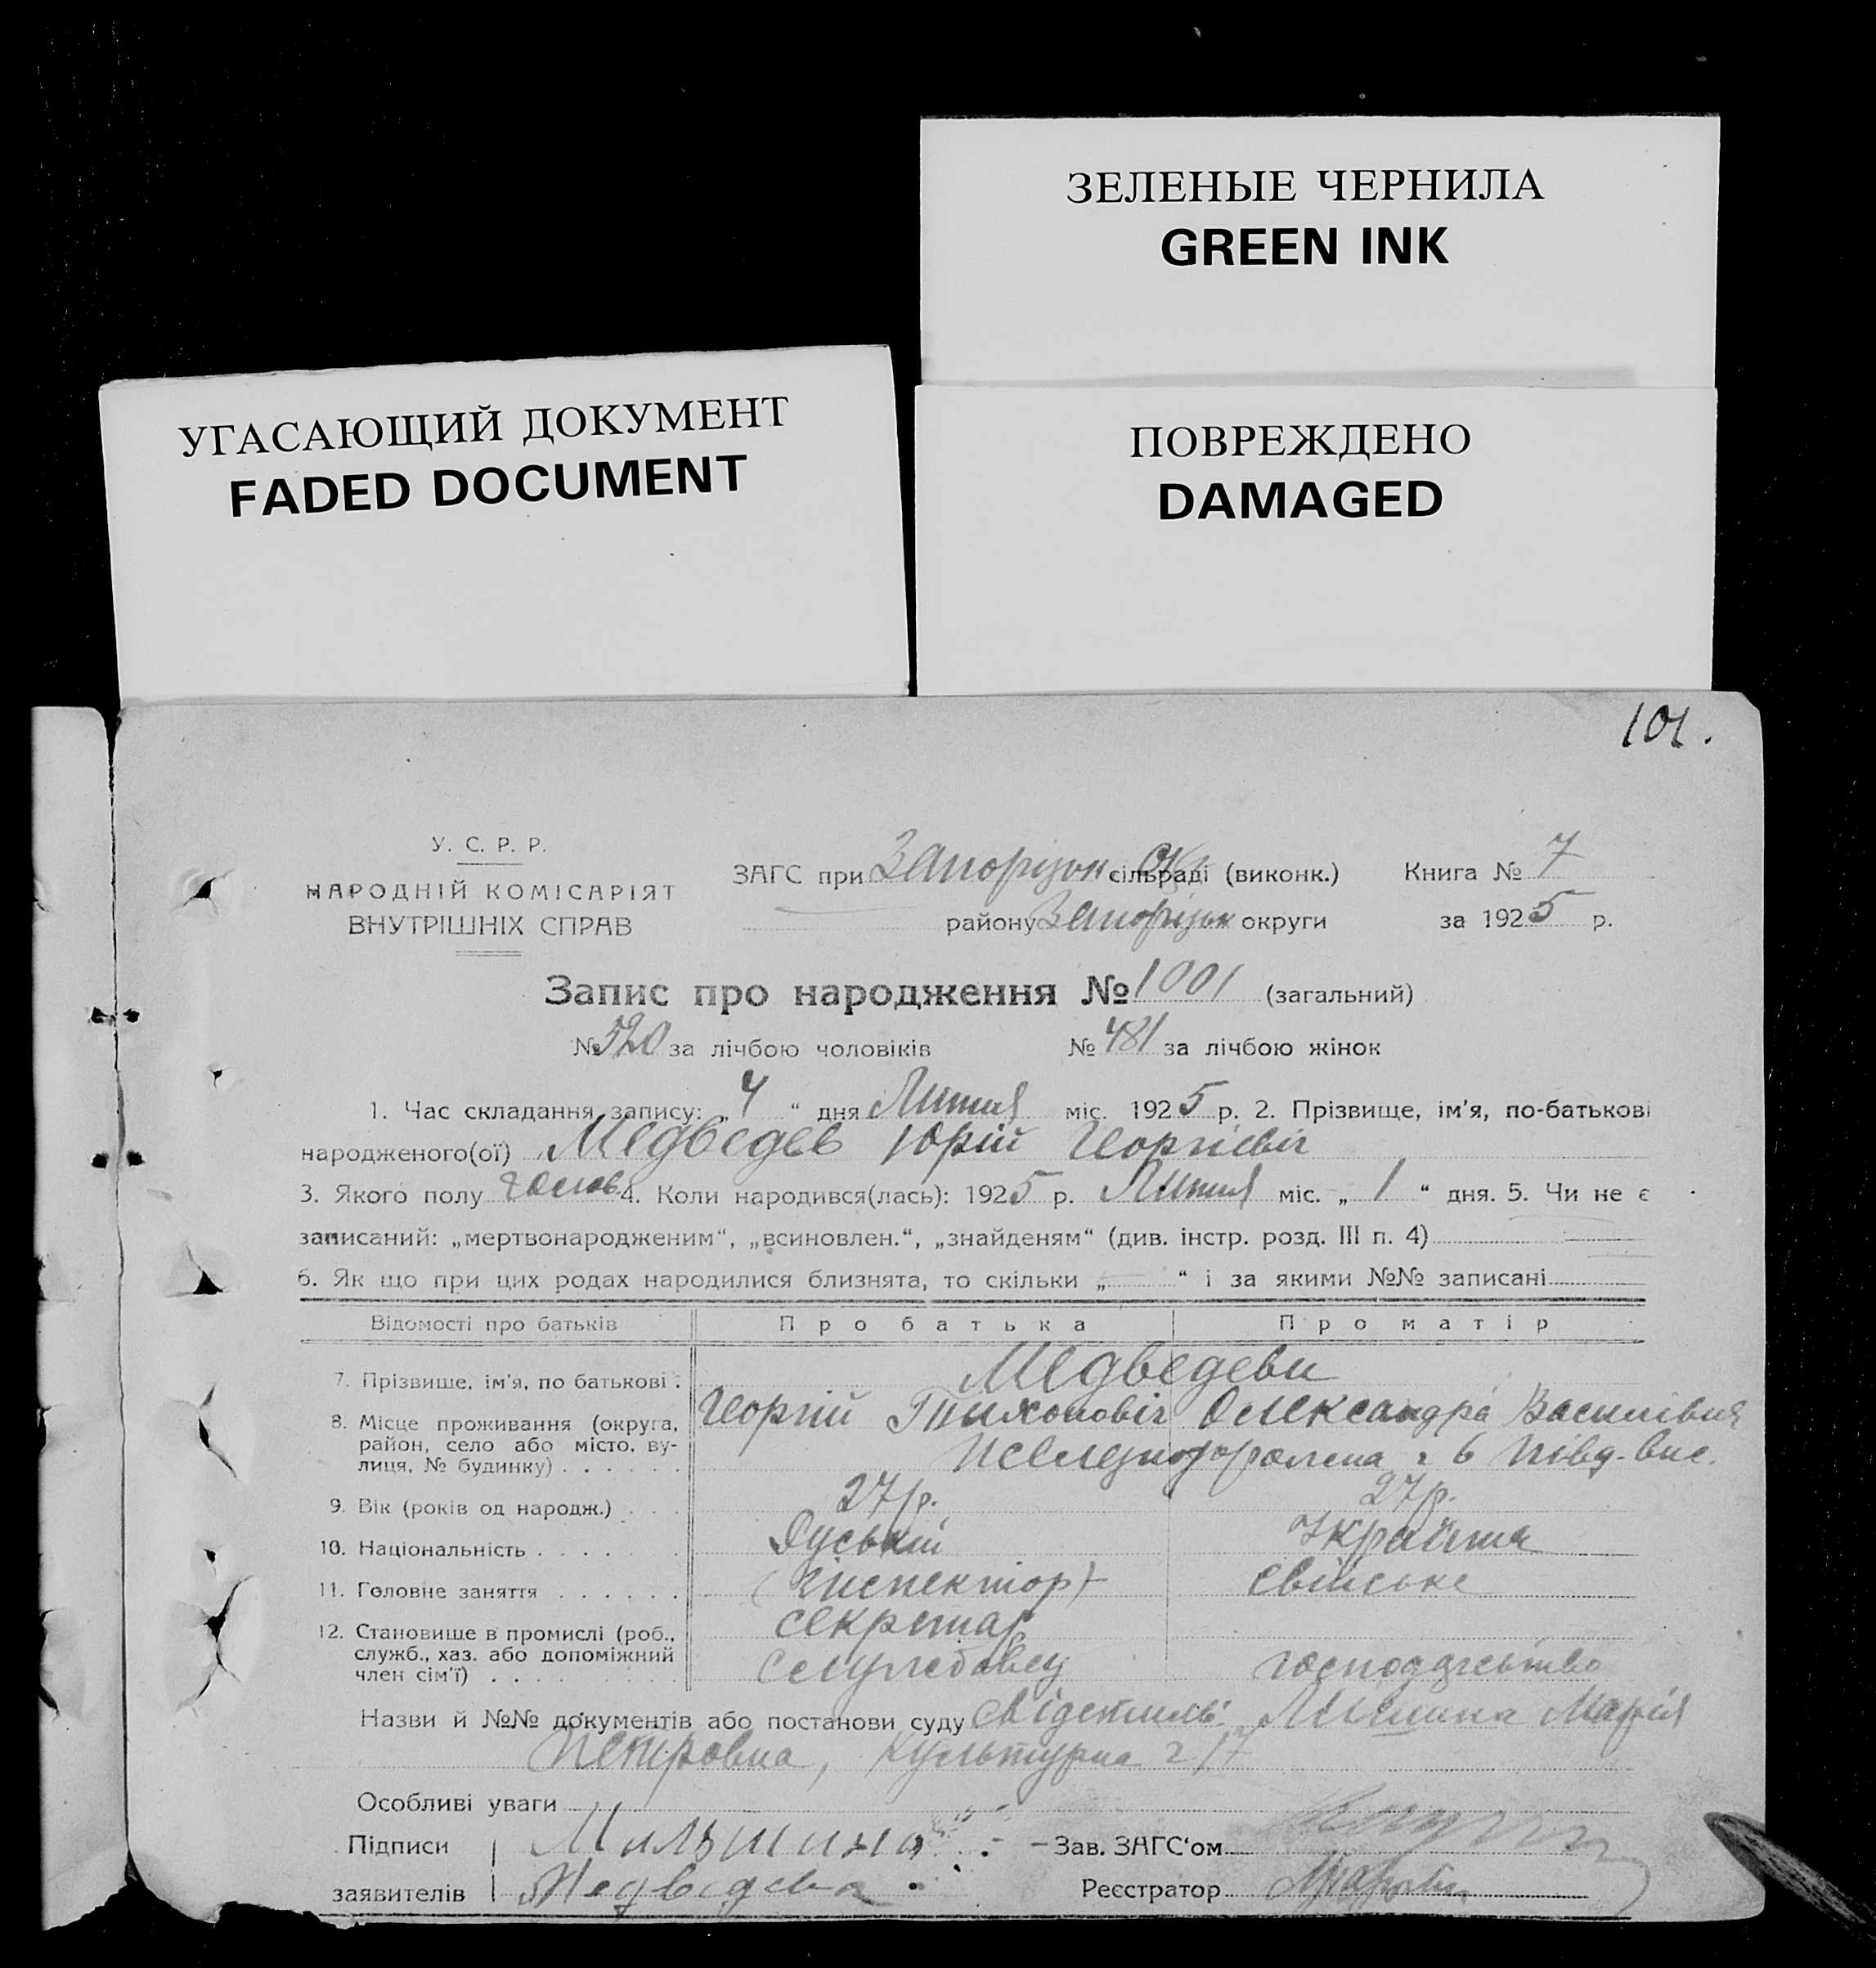 ЗЕЛЕНЫЕ ЧЕРНИЛА
GREEN INK
УГАСАЮЩИЙ ДОКУМЕНТ
FADED DOCUMENT
ПОВРЕЖДЕНО
DAMAGED
101.
У. С. Р. Р.
НАРОДНІЙ КОМІСАРІЯТ
ВНУТРІШНІХ СПРАВ
ЗАГС при Запорізьк. сільраді (виконк.) Книга № 7
району Запорізьк округи за 1925 р.
Запис про народження № 1001 (загальний)
№ 520 за лічбою чоловіків № 481 за лічбою жінок
1. Час складання запису: „4“ дня Липня міс. 1925 р. 2. Прізвище, ім'я, по-батькові
народженого(ої) Медведев Юрій Георгієвіч
3. Якого полу 4. Коли народився(лась): 1925 р. Липня міс. „1“ дня. 5. Чи не є
записаний: „мертвонародженим“, „всиновлен.“, „знайденям“ (див. інстр. розд. III п. 4)
6. Як що при цих родах народилися близнята, то скільки „ “ і за якими №№ записані
Відомості про батьків Про батька Про матір
7. Прізвище, ім'я, по батькові . Медведеви
Георгій Тихоновіч Олександра Василівна
8. Місце проживання (округа,
район, село або місто, ву-
лиця, № будинку) . . . . . . 6 Півд-вис.
9. Вік (років од народж.) . . . 27 р. 27 р.
10. Національність . . . . . Руський Українка
11. Головне заняття . . . . . . (Інспектор) свійське
секретар
12. Становище в промислі (роб.,
служб., хаз. або допоміжний
член сім'ї) . . . . . . . . службовец господарство
Назви й №№ документів або постанови суду Марія
Петровна, Культурна 17
Особливі уваги
Підписи Мильшина Зав. ЗАГС'ом
заявителів Медведева Реєстратор